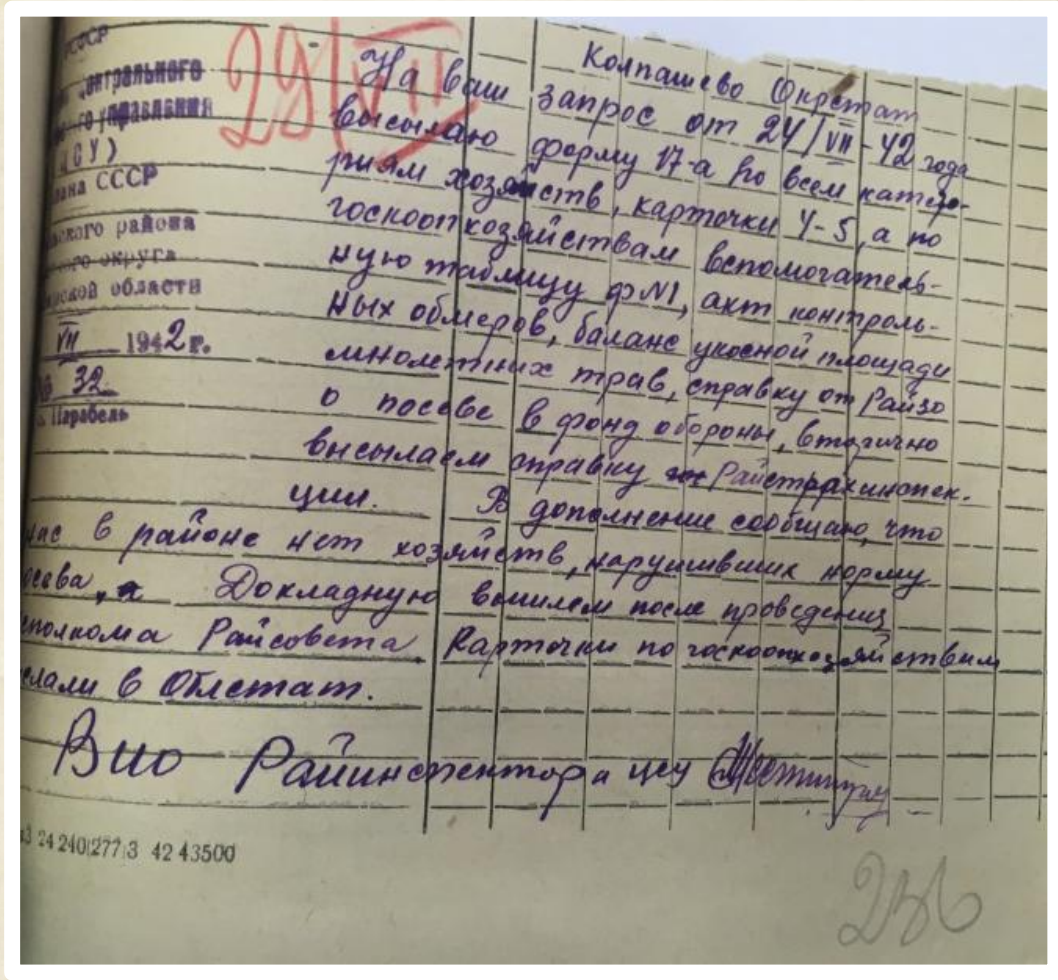 РСФСР
центрального
го управления
(ЦСУ)
плана СССР
ского района
ского округа
ской области
VII 1942 г.
№ 32
с. Парабель
29/VII
Колпашево Окрстат
На ваш запрос от 24/VII-42 года
высылаю форму 17-а по всем катего-
риям хозяйств, карточки 4-5, а по
госкоопхозяйствам вспомогатель-
ную таблицу ф№1, акт контроль-
ных обмеров, баланс укосной площади
многолетних трав, справку от Райзо
о посеве в фонд обороны, вторично
высылаем справку Райстрахинспек-
ции. В дополнение сообщаю, что
нас в районе нет хозяйств, нарушивших норму
осева, Докладную вышлем после проведения
сполкома Райсовета. Карточки по госкоопхозяйствам
слали в Облстат.
Врио Райинспектора ЦСУ
з 24 240 277 3 42 43500
236